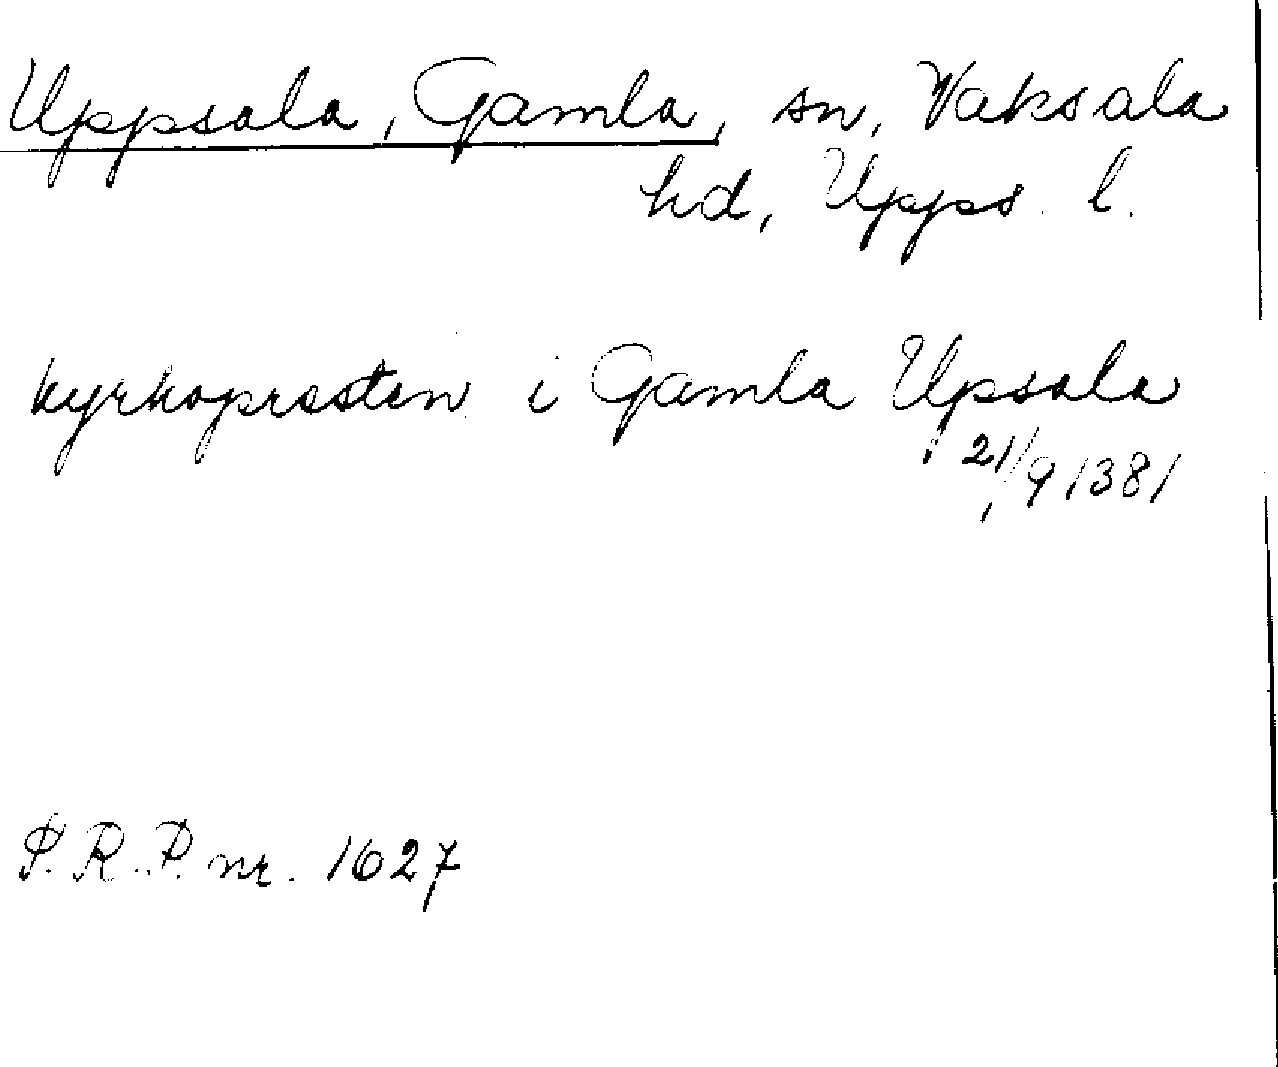 Uppsala, Gamla, sn, Vaksala
hd, Upps. l.
kyrkopresten i Gamla Upsala
21/9 1381
S.R.P. nr. 1627